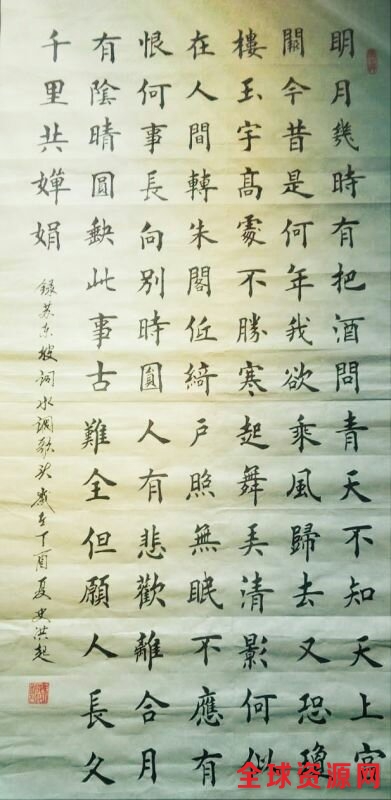 明月幾時有把酒問青天不知天上宫
闕今昔是何年我欲乘風歸去又恐瓊
樓玉宇高處不勝寒起舞弄清影何似
在人間轉朱閣低綺户照無眠不應有
恨何事長向別時圓人有悲歡離合月
有陰晴圓缺此事古難全但願人長久
千里共嬋娟
錄苏东坡词水调歌头岁在丁酉夏史洪起
全球资源网